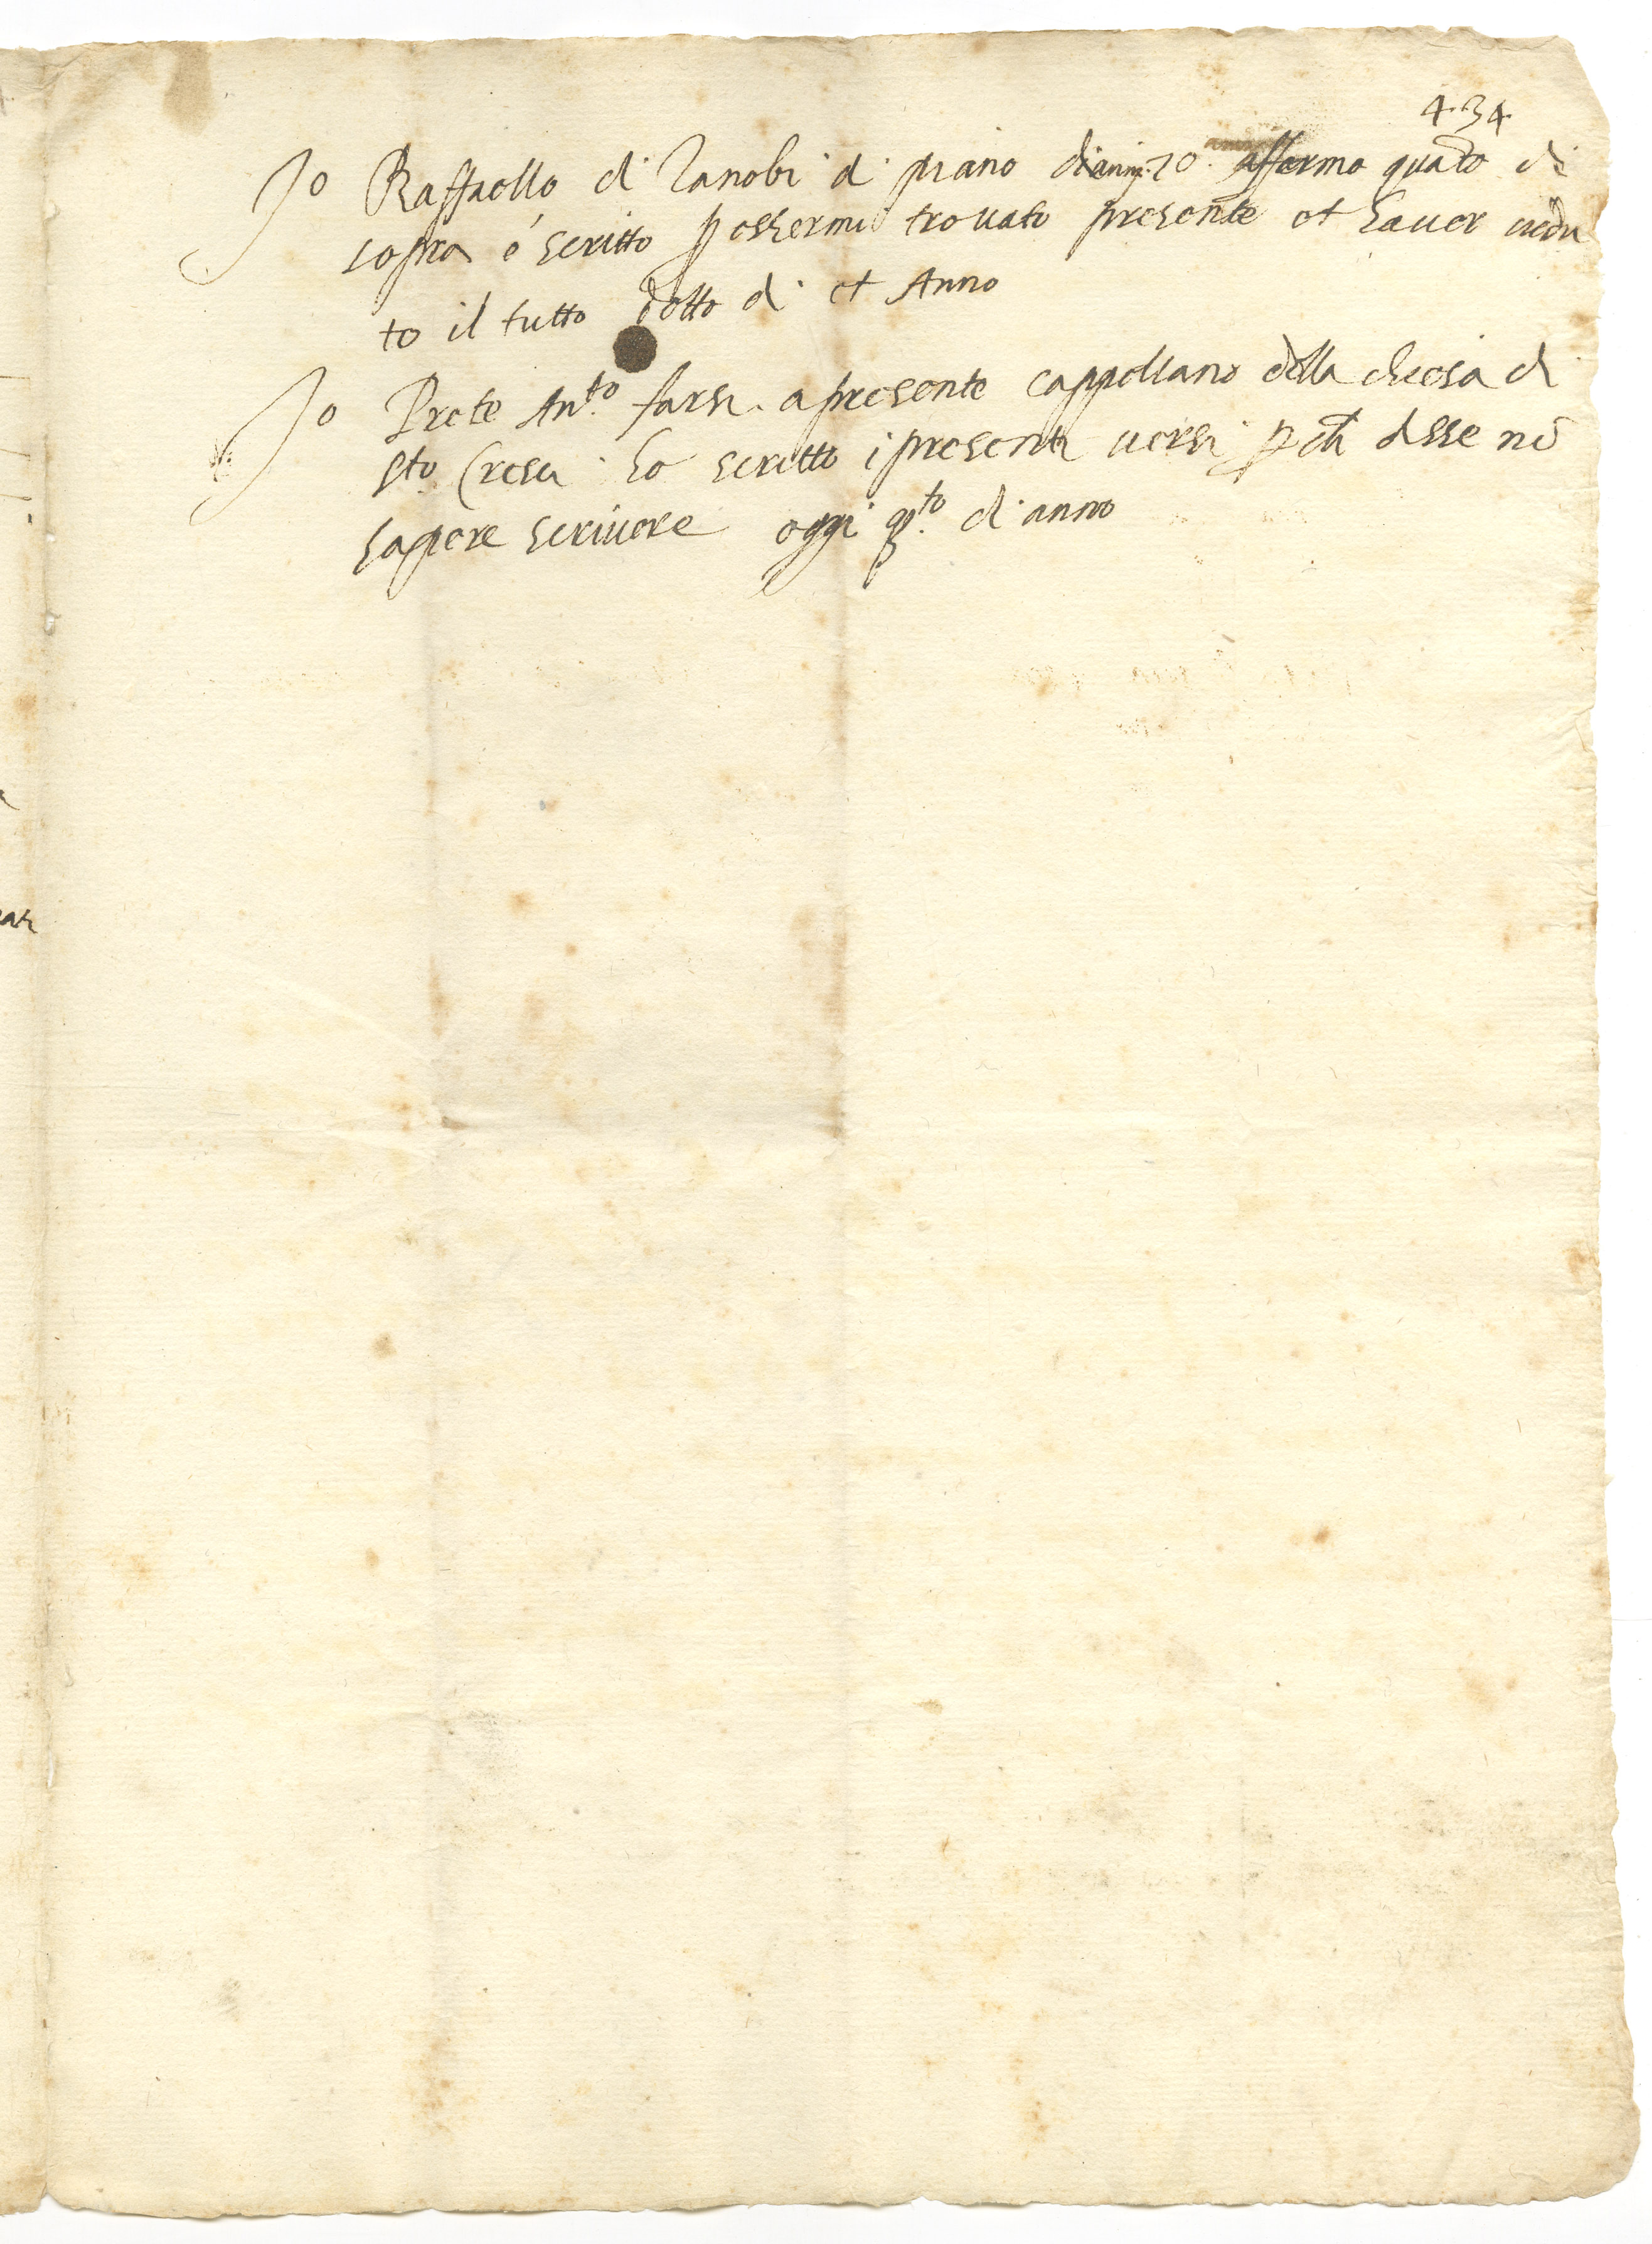 434
Io Raffaello di Zanobi di piano di anni 70. affermo quāto di
sopra é scritto p essermi trovato presente et haver vedu
to il tutto detto di et Anno
Io Prete Ant.to farsi a presente cappellano della chiesa di
sto Cresci ho scritto i presenti versi p ch disse nō
sapere scrivere oggi qto di anno